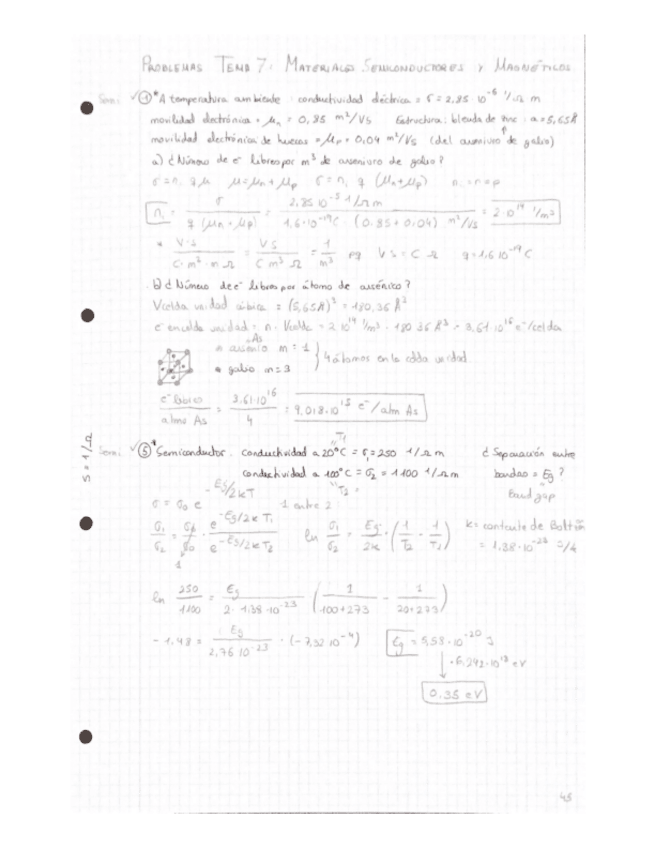 PROBLEMAS TEMA 7: MATERIALES SEMICONDUCTORES Y MAGNÉTICOS
Sem: ✓ ①* A temperatura ambiente: conductividad eléctrica = σ = 2,85 · 10⁻⁵ 1/Ω m
movilidad electrónica = μn = 0,85 m²/VS Estructura: blenda de zinc: a = 5,65Å
movilidad electrónica de huecos = μp = 0,04 m²/VS (del arseniuro de galio)
a) ¿Número de e⁻ libres por m³ de arseniuro de galio?
σ = n · q μ μ = μn + μp σ = ni q (μn + μp) ni = n = p
ni = σ / q (μn + μp) = 2,85 10⁻⁵ 1/Ω m / 1,6 · 10⁻¹⁹ C · (0,85 + 0,04) m²/VS = 2 · 10¹⁴ 1/m³
* V·S / C · m² · m Ω = V S / C m³ Ω = 1 / m³ pq V S = C Ω q = 1,6 10⁻¹⁹ C
b) ¿Número de e⁻ libres por átomo de arsénico?
Vcelda unidad cúbica = (5,65Å)³ = 180,36 Å³
e⁻ en celda unidad = n · Vcelda = 2 10¹⁴ 1/m³ · 180,36 Å³ = 3,61·10¹⁶ e⁻/celda
As
• arsenio m = 1
• galio m = 3
} 4 átomos en la celda unidad
e⁻ libres / átomo As = 3,61·10¹⁶ / 4 = 9,018·10¹⁵ e⁻/atm As
S = 1/Ω
Sem: ✓ ⑤* Semiconductor. conductividad a 20°C = σ₁ = 250 1/Ω m ¿Separación entre
T1
conductividad a 100°C = σ₂ = 1100 1/Ω m bandas = Eg?
T2 Band gap
σ = σ₀ e^(-Eg/2kT) 1 entre 2
σ₁/σ₂ = σ₀/σ₀ · e^(-Eg/2kT₁) / e^(-Eg/2kT₂) ln σ₁/σ₂ = Eg/2k · (1/T₂ - 1/T₁) k = contante de Boltzm
1 = 1,38 · 10⁻²³ J/k
ln 250/1100 = Eg / 2 · 1,38 · 10⁻²³ (1/100+273 - 1/20+273)
-1,48 = Eg / 2,76 10⁻²³ · (-7,32 10⁻⁴) Eg = 5,58 · 10⁻²⁰ J
↓ · 6,242·10¹⁸ eV
0.35 eV
43